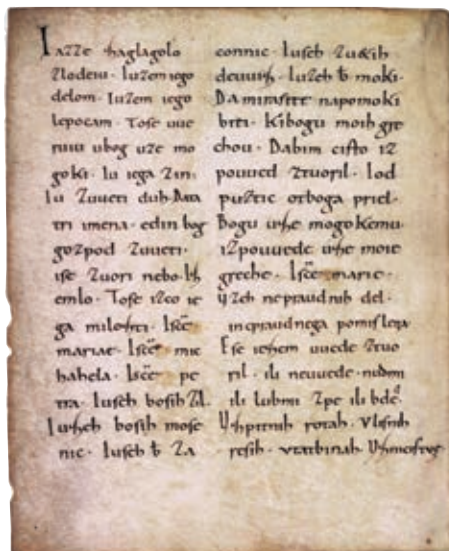 Iazze zaglagolo
zlodeiu · Iuzem iego
delom · Iuzem iego
lepocam · Tose uue
ruiu ubog uze mo
goki · Iu iega zin ·
Iu zuueti duh · Data
tri imena · edin bog
gozpod zuueti ·
ise zuori nebo · Iz
emlo · Tose izco ie
ga milozti · Isce
mariae · Isce mic
hahela · Isce pe
tra · Iuseh bosih zil ·
Iuzeh bosih mose
nic · Iuseh b za
connic · Iuseh zu&ih
deuuiz · Iuzeh b moki ·
Damirasite napomoki
biti · Kibogu moih gre
chou · Dabim cisto iz
pouued ztuoril · Iod
puztic otboga priel ·
Bogu uze mogokemu ·
izpouuede uze moie
greche · Isce marie ·
Uzeh nepraudnih del ·
inepraudnega pomislega
Ese iezem uuede ztuo
ril · ili neuuede · nudmi
ili lubmi zpe ili bde
Uzpitnih rotah · Vlisnih
resih · vtatbinah Uznicistve